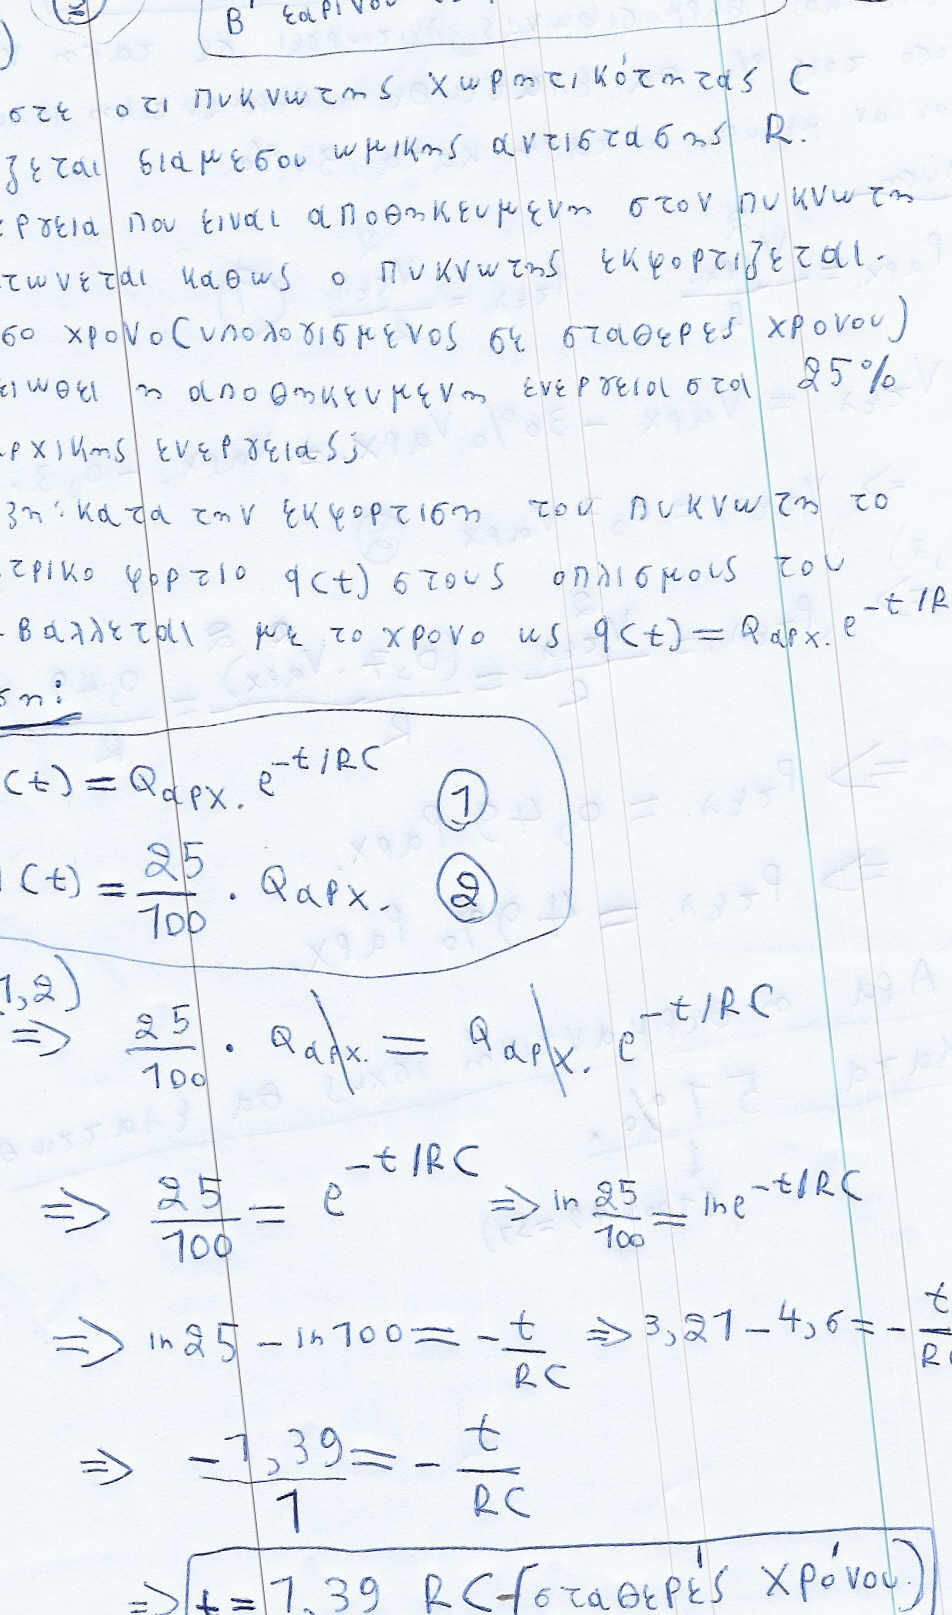 Β' εαρινού
στε οτι πυκνωτης χωρητικότητας C
ζεται διαμεσου ωμικης αντιστασης R.
ργεια που ειναι αποθηκευμενη στον πυκνωτη
τωνεται καθως ο πυκνωτης εκφορτιζεται.
σο χρονο(υπολογισμενος σε σταθερες χρονου)
ειωθει η αποθηκευμενη ενεργεια στα 25%
ρχικης ενεργειας;
ξη: κατα την εκφορτιση του πυκνωτη το
τρικο φορτιο q(t) στους οπλισμους του
βαλλεται με το χρονο ως q(t) = Qαρχ. e^-t/R
ση:
(t) = Qαρχ. e^-t/RC ①
(t) = 25/100 . Qαρχ. ②
1,2)
=> 25/100 . Qαρχ. = Qαρχ. e^-t/RC
=> 25/100 = e^-t/RC => ln 25/100 = lne^-t/RC
=> ln25 - ln100 = - t/RC => 3,21 - 4,6 = - t/RC
=> -1,39/1 = - t/RC
=> t = 1,39 RC (σταθερές χρόνου.)